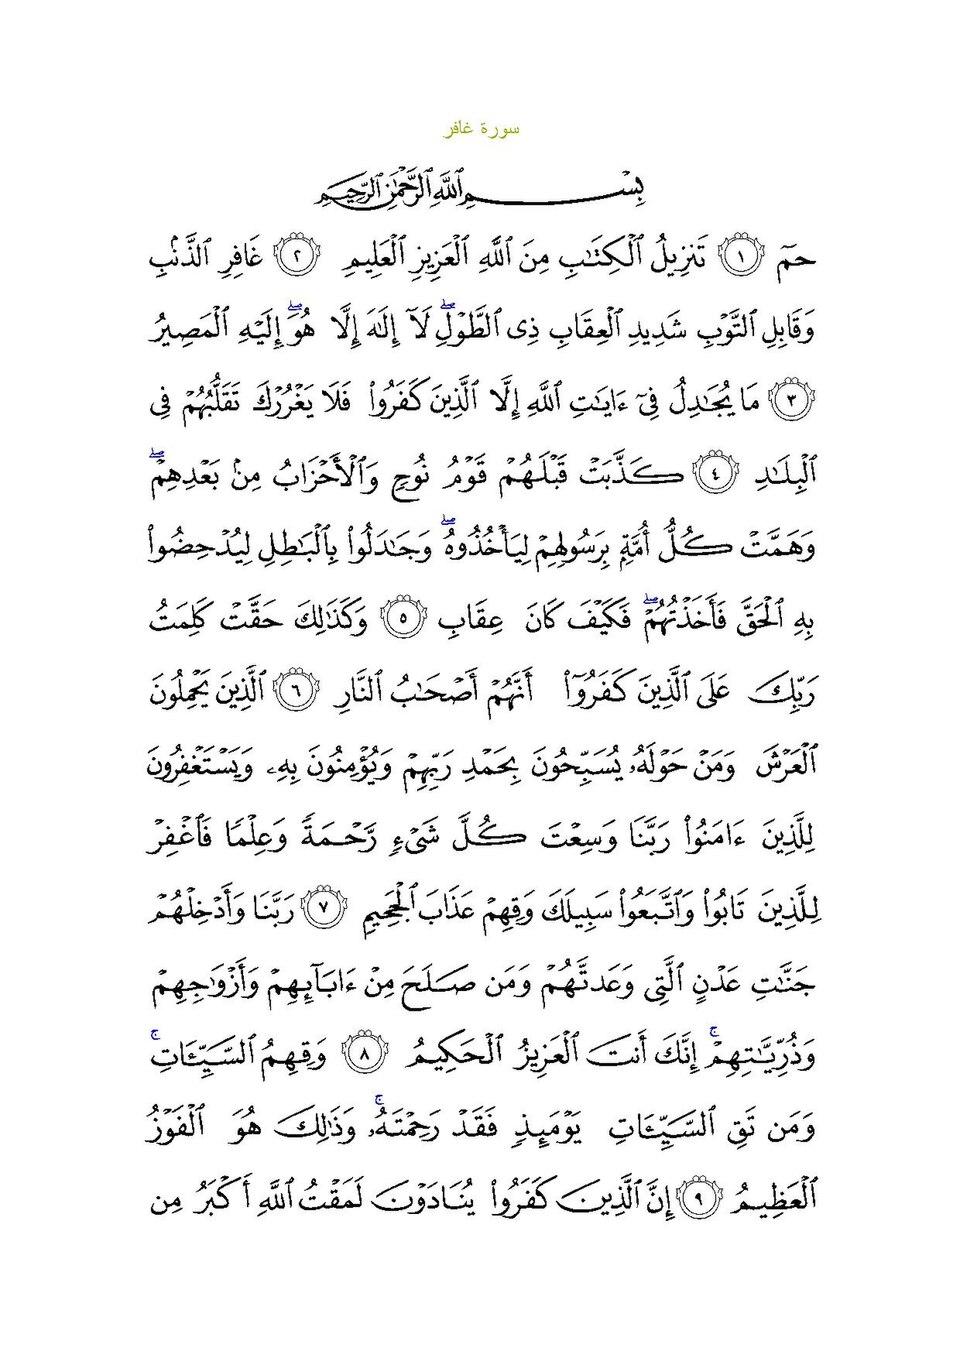 سورة غافر
بِسْمِ ٱللَّهِ ٱلرَّحْمَٰنِ ٱلرَّحِيمِ
حمٓ ﴿١﴾ تَنزِيلُ ٱلْكِتَٰبِ مِنَ ٱللَّهِ ٱلْعَزِيزِ ٱلْعَلِيمِ ﴿٢﴾ غَافِرِ ٱلذَّنۢبِ
وَقَابِلِ ٱلتَّوْبِ شَدِيدِ ٱلْعِقَابِ ذِى ٱلطَّوْلِ ۖ لَآ إِلَٰهَ إِلَّا هُوَ ۖ إِلَيْهِ ٱلْمَصِيرُ
﴿٣﴾ مَا يُجَٰدِلُ فِىٓ ءَايَٰتِ ٱللَّهِ إِلَّا ٱلَّذِينَ كَفَرُوا۟ فَلَا يَغْرُرْكَ تَقَلُّبُهُمْ فِى
ٱلْبِلَٰدِ ﴿٤﴾ كَذَّبَتْ قَبْلَهُمْ قَوْمُ نُوحٍ وَٱلْأَحْزَابُ مِنۢ بَعْدِهِمْ ۖ
وَهَمَّتْ كُلُّ أُمَّةٍۭ بِرَسُولِهِمْ لِيَأْخُذُوهُ ۖ وَجَٰدَلُوا۟ بِٱلْبَٰطِلِ لِيُدْحِضُوا۟
بِهِ ٱلْحَقَّ فَأَخَذْتُهُمْ ۖ فَكَيْفَ كَانَ عِقَابِ ﴿٥﴾ وَكَذَٰلِكَ حَقَّتْ كَلِمَتُ
رَبِّكَ عَلَى ٱلَّذِينَ كَفَرُوٓا۟ أَنَّهُمْ أَصْحَٰبُ ٱلنَّارِ ﴿٦﴾ ٱلَّذِينَ يَحْمِلُونَ
ٱلْعَرْشَ وَمَنْ حَوْلَهُۥ يُسَبِّحُونَ بِحَمْدِ رَبِّهِمْ وَيُؤْمِنُونَ بِهِۦ وَيَسْتَغْفِرُونَ
لِلَّذِينَ ءَامَنُوا۟ رَبَّنَا وَسِعْتَ كُلَّ شَىْءٍ رَّحْمَةً وَعِلْمًا فَٱغْفِرْ
لِلَّذِينَ تَابُوا۟ وَٱتَّبَعُوا۟ سَبِيلَكَ وَقِهِمْ عَذَابَ ٱلْجَحِيمِ ﴿٧﴾ رَبَّنَا وَأَدْخِلْهُمْ
جَنَّٰتِ عَدْنٍ ٱلَّتِى وَعَدتَّهُمْ وَمَن صَلَحَ مِنْ ءَابَآئِهِمْ وَأَزْوَٰجِهِمْ
وَذُرِّيَّٰتِهِمْ ۚ إِنَّكَ أَنتَ ٱلْعَزِيزُ ٱلْحَكِيمُ ﴿٨﴾ وَقِهِمُ ٱلسَّيِّـَٔاتِ ۚ
وَمَن تَقِ ٱلسَّيِّـَٔاتِ يَوْمَئِذٍ فَقَدْ رَحِمْتَهُۥ ۚ وَذَٰلِكَ هُوَ ٱلْفَوْزُ
ٱلْعَظِيمُ ﴿٩﴾ إِنَّ ٱلَّذِينَ كَفَرُوا۟ يُنَادَوْنَ لَمَقْتُ ٱللَّهِ أَكْبَرُ مِن